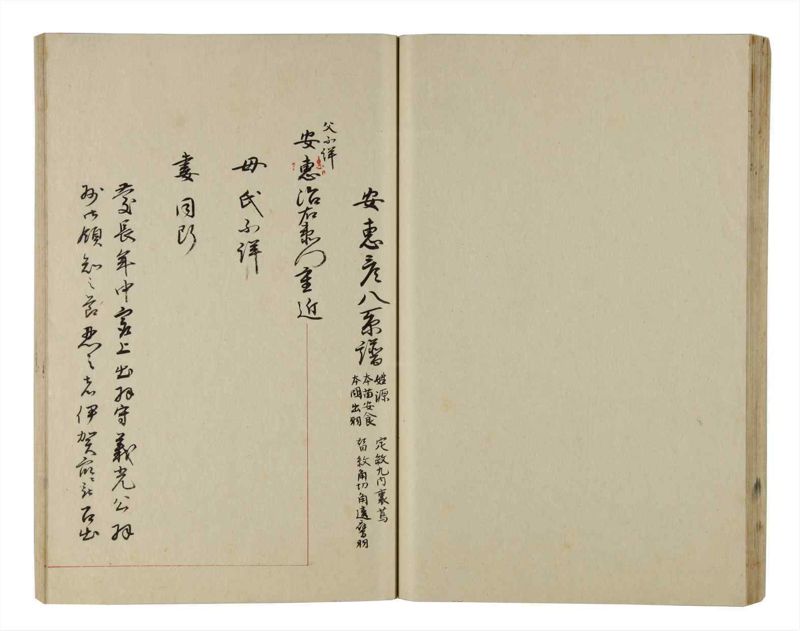 安恵彦八系譜
姓源
本苗安食
本国出羽
定紋丸内裏蔦
替紋角切角違鷹羽
父不詳
安恵治右衛門重近
母氏不詳
妻同断
慶長年中最上出羽守義光公羽
州御領知之節忍之者伊賀 召出